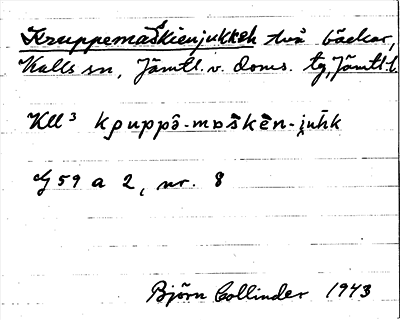 Kruppemaskienjukkeh två bäckar,
Kalls sn, Jämtl. v. doms. tg, Jämtl. l.
Kll³ kρuppō̂-mɒs̄kèn-i̯uh̄k
G 59 a 2, nr. 8
Björn Collinder 1943